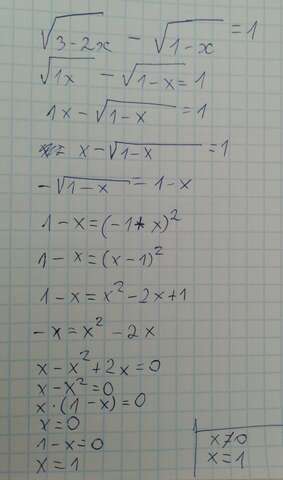 √3-2x - √1-x = 1
√1x - √1-x = 1
1x - √1-x = 1
x - √1-x = 1
-√1-x = 1-x
1-x = (-1+x)²
1-x = (x-1)²
1-x = x² - 2x + 1
-x = x² - 2x
x - x² + 2x = 0
x - x² = 0
x · (1 - x) = 0
x = 0
1 - x = 0
x = 1
x≠0
x = 1